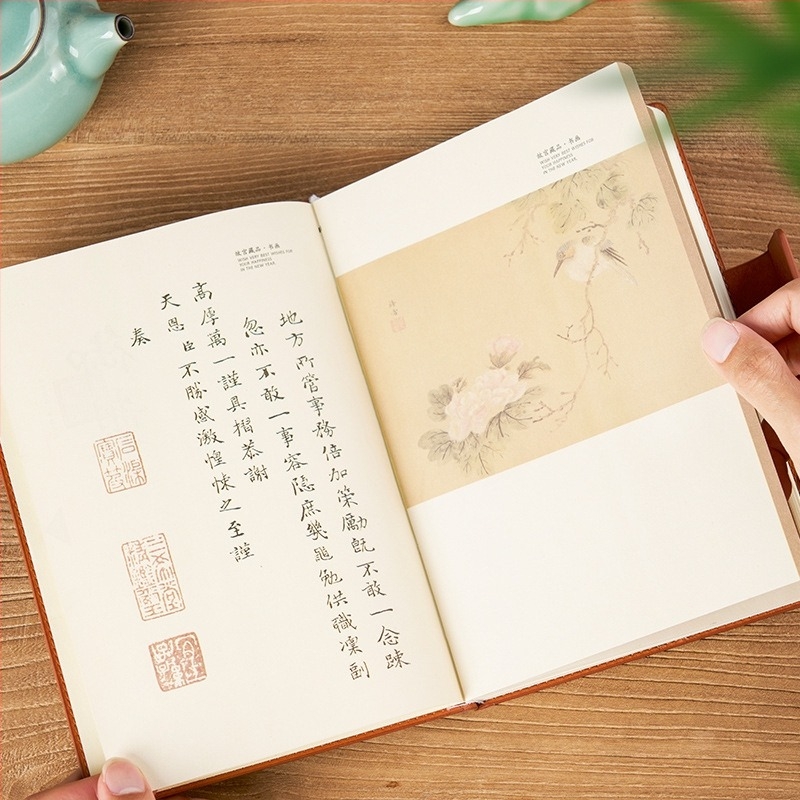 故宫藏品·书画
WISH VERY BEST WISHES FOR
YOUR HAPPINESS
IN THE NEW YEAR.
地方所管事務倍加策勵既不敢一念疎
忽亦不敢一事容隱庶幾黽勉供職凜副
高厚萬一謹具摺恭謝
天恩臣不勝感激惶悚之至謹
奏
故宫藏品·书画
WISH VERY BEST WISHES FOR
YOUR HAPPINESS
IN THE NEW YEAR.